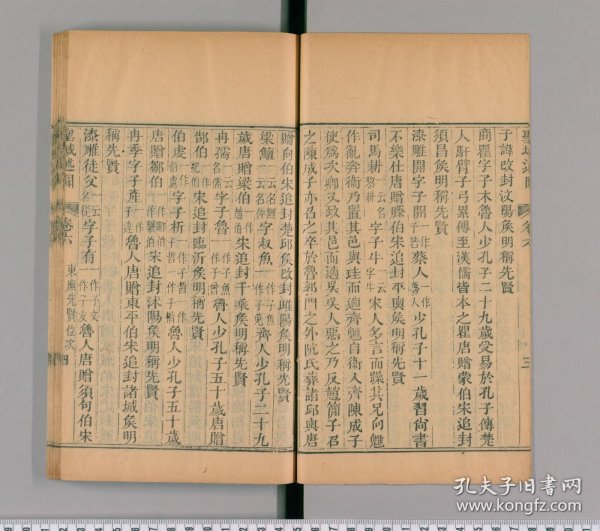 子諱改封汶陽矦明稱先賢
商瞿字子木魯人少孔子二十九歲受易於孔子傳楚
人馯臂子弓累傳至漢儒皆本之瞿唐贈蒙伯宋追封
須昌矦明稱先賢
漆雕開字子開一作子若蔡人一作魯人少孔子十一歲習尚書
不樂仕唐贈滕伯宋追封平輿矦明稱先賢
司馬耕一名犂耕字子牛宋人多言而躁其兄向魋
作亂奔衞乃置其邑與珪而適齊魋自衞入齊陳成子
使爲次卿又致其邑而適吳吳人惡之乃反趙簡子召
之陳成子亦召之卒於魯郭門之外阬氏葬諸邱輿唐
三
贈向伯宋追封楚邱矦改封睢陽矦明稱先賢
梁鱣一云名鯉字叔魚一作子魚齊人少孔子二十九
歲唐贈梁伯宋追封千乘矦明稱先賢
冉孺一云名儒字子魯一作子魚魯人少孔子五十歲唐贈
郜伯宋追封臨沂矦明稱先賢
伯虔字子析魯人少孔子五十歲
唐贈聊伯宋追封沐陽矦明稱先賢
冉季字子產魯人唐贈東平伯宋追封諸城矦明
稱先賢
漆雕徒父一云名從字子有一作子文魯人唐贈須句伯宋
聖域述聞
卷六
東廡先賢位次
四
孔夫子旧书网
www.kongfz.com